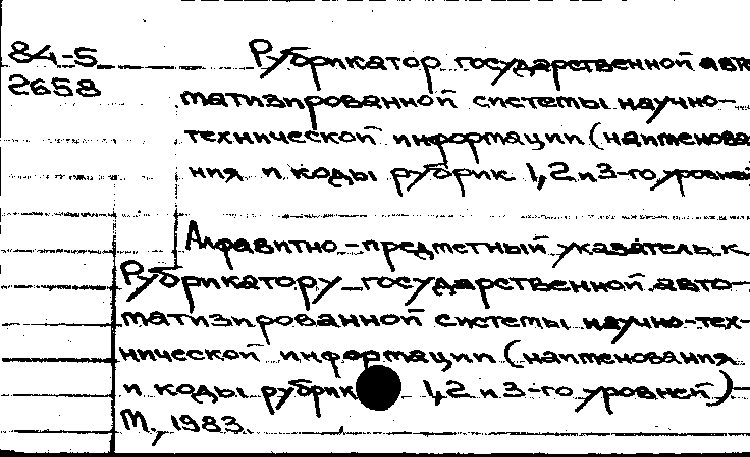 84-5 Рубрикатор государственной авто
2658
матизированной системы научно-
технической информации (наименова
ния и коды рубрик 1,2 и 3-го уровней
Алфавитно-предметный указатель к
Рубрикатору государственной авто-
матизированной системы научно-тех-
нической информации (наименования
и коды рубрик 1,2 и 3-го уровней)-
М., 1983.